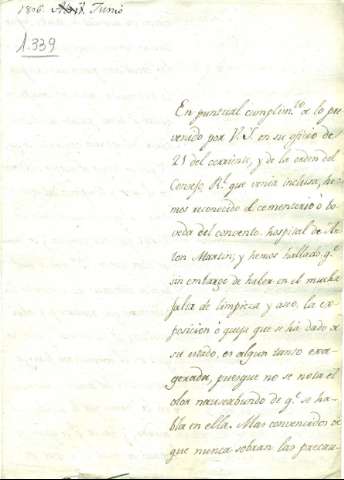 1806. Abril Junio
1.339
En puntual cumplim.to de lo pre
venido por V.I. en su oficio de
21 del corriente, y de la orden del
Consejo R.l que venia inclusa, he
mos reconocido el cementerio ó bo
veda del convento hospital de An
ton Martin; y hemos hallado q.e
sin embargo de haber en el mucha
falta de limpieza y aseo, la ex
posicion ó queja que se há dado de
su estado, es algun tanto exa
gerada, puesque no se nota el
olor nauseabundo de q.e se ha
bla en ella. Mas convencidos de
que nunca sobran las precau-